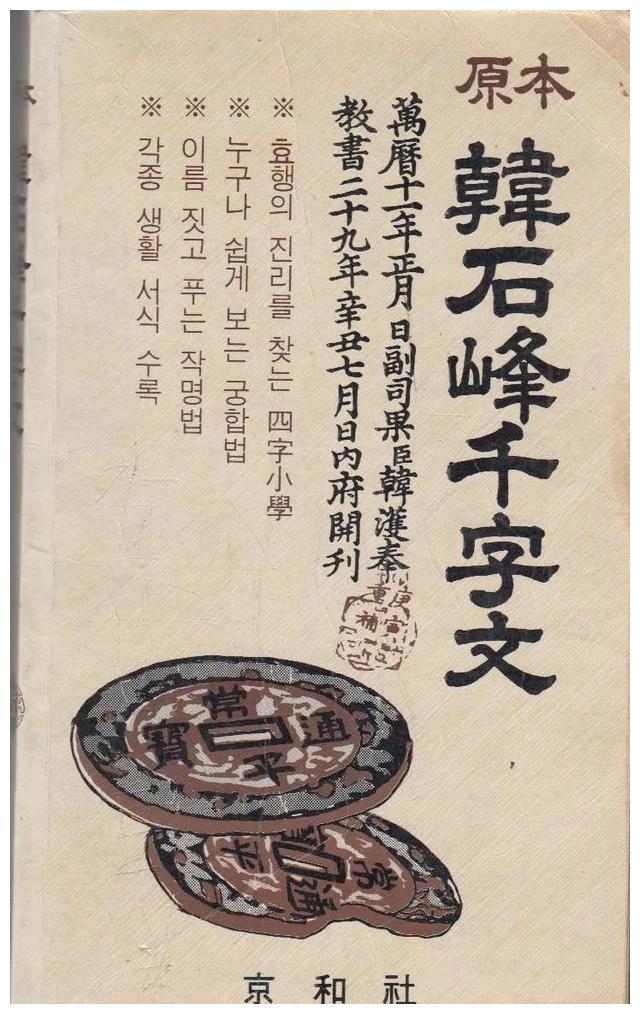 原本
韓石峰千字文
萬曆十一年正月 日副司果臣韓濩奉
教書二十九年辛丑七月日內府開刊
※ 효행의 진리를 찾는 四字小學
※ 누구나 쉽게 보는 궁합법
※ 이름 짓고 푸는 작명법
※ 각종 생활 서식 수록
常平通寶
常平通寶
京和社